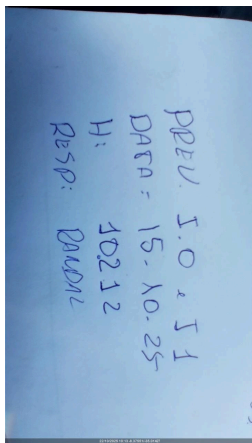 PREV. I.O e I1
DATA = 15-10.25
H: 10212
RESP: